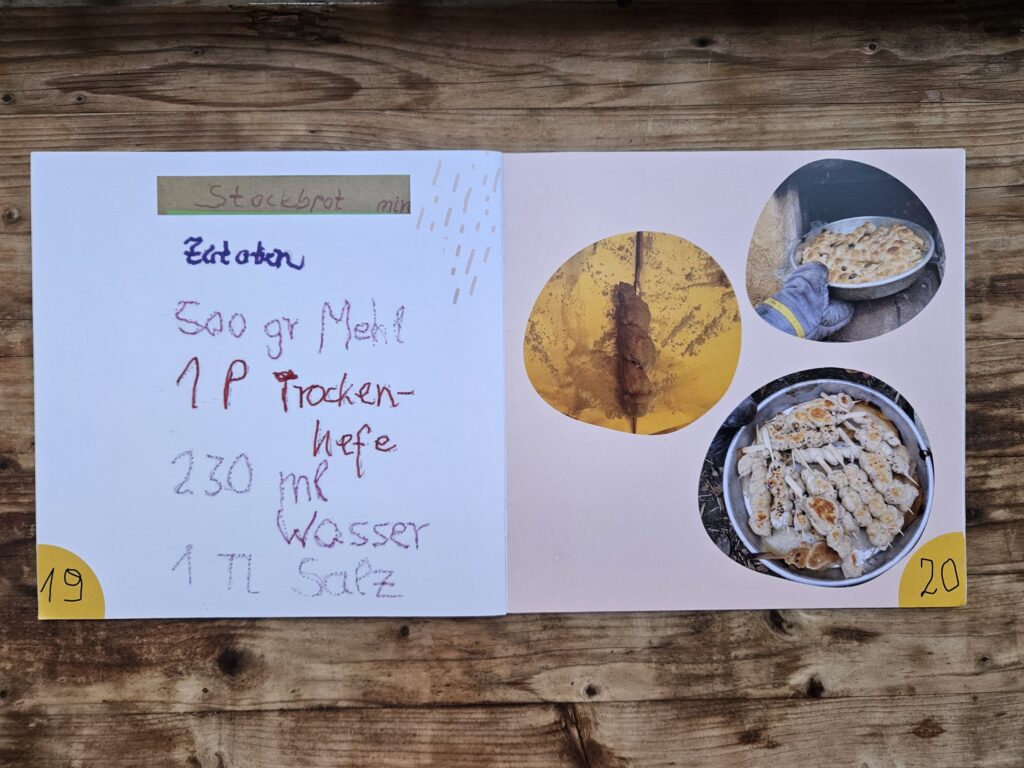 Stockbrot min
Zutaten
500 gr Mehl
1 P Trocken-
hefe
230 ml
Wasser
1 TL Salz
19
20